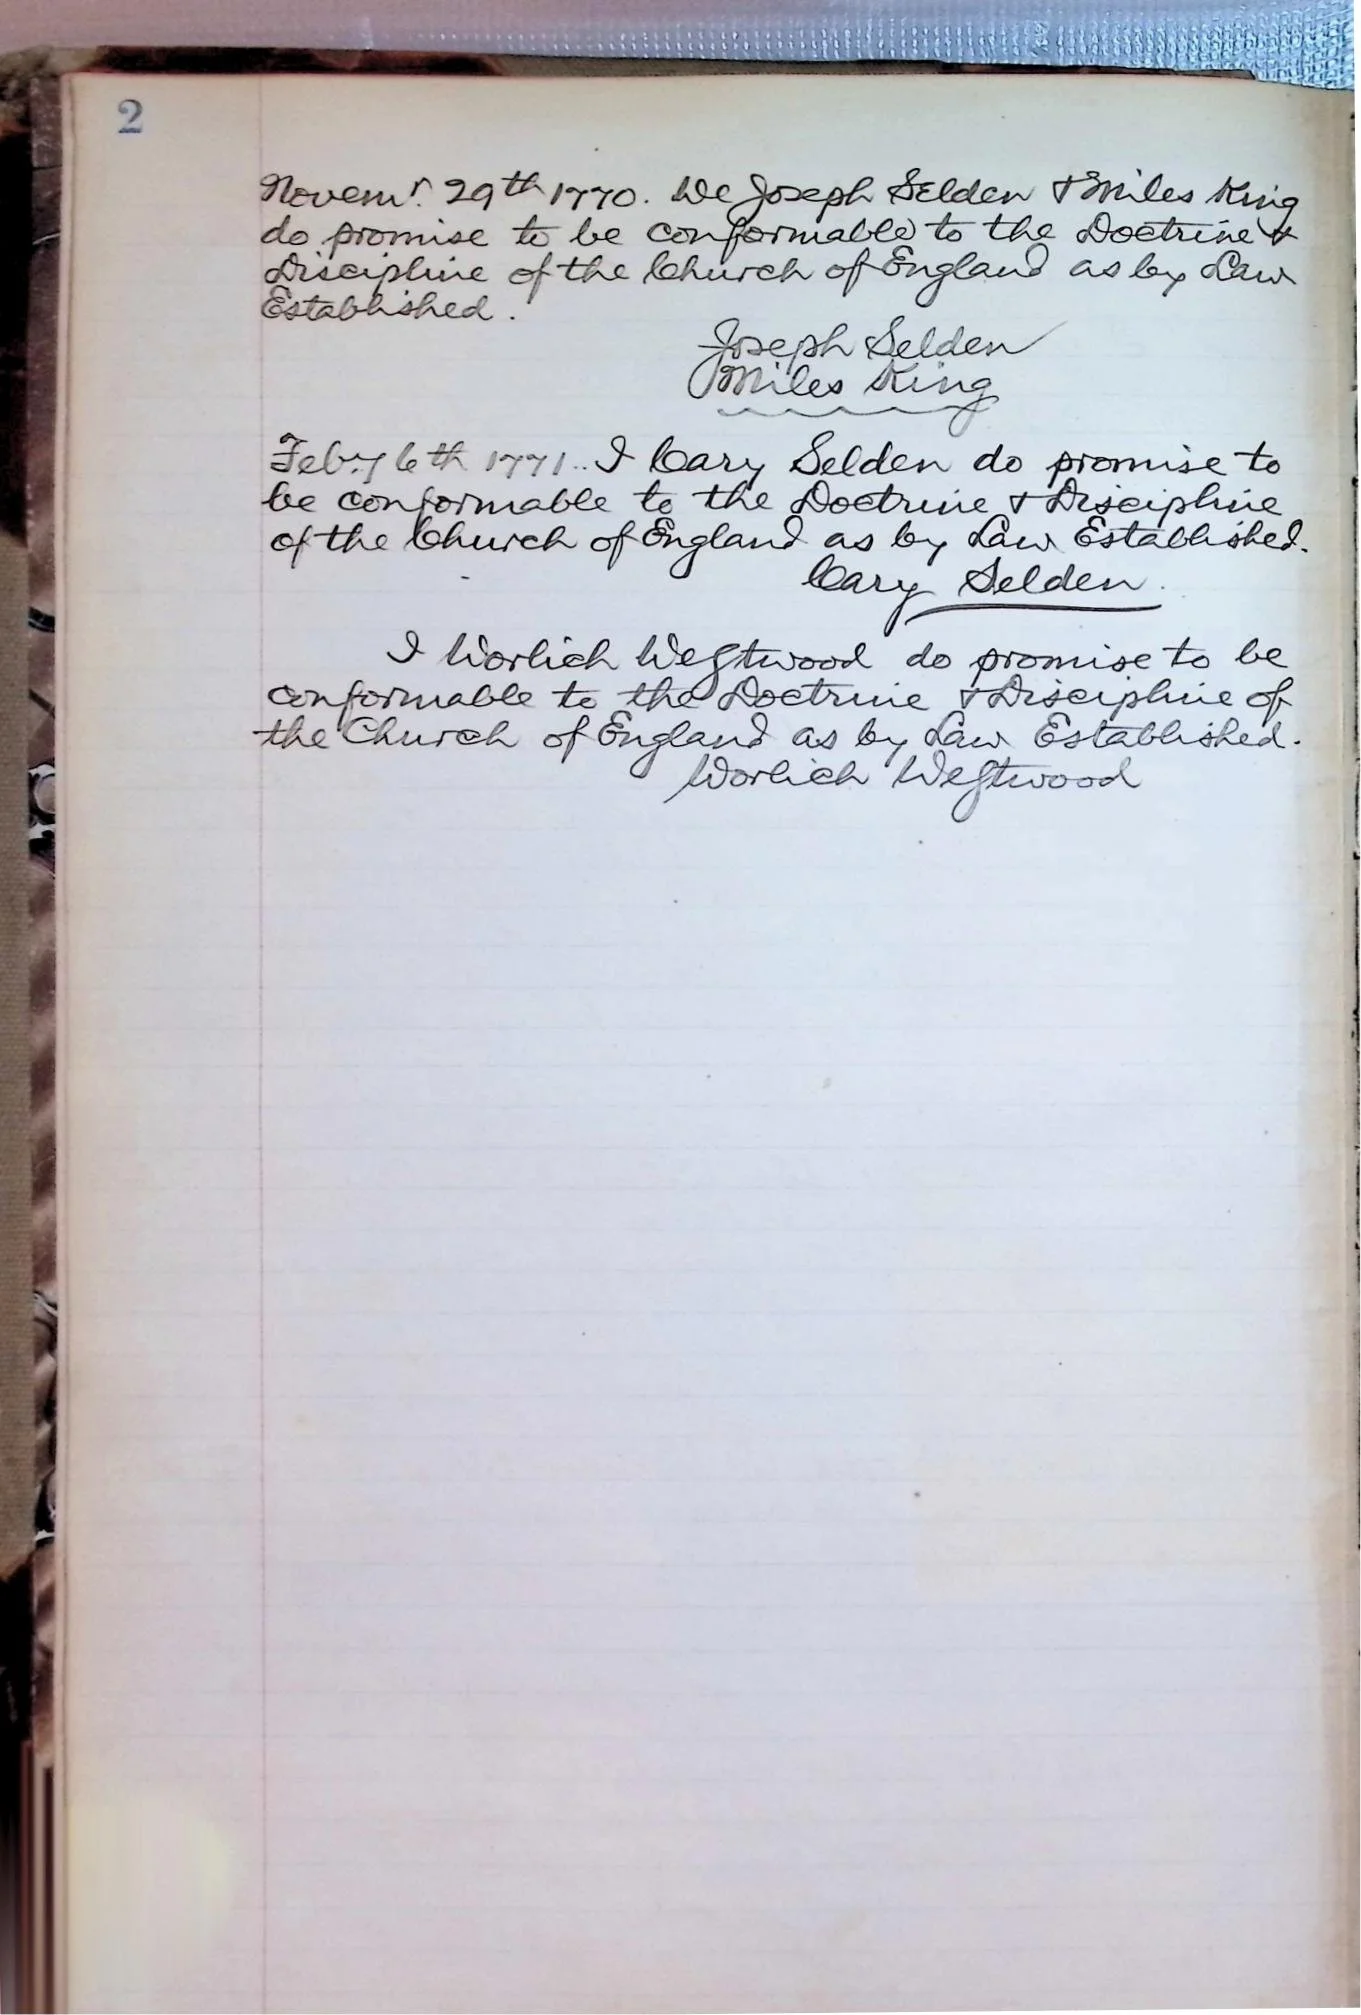 2
Novem.r 29th 1770. We Joseph Selden & Miles King
do promise to be conformable to the Doctrine &
Discipline of the Church of England as by Law
Established.
Joseph Selden
Miles King
Feby 6th 1771.. I Cary Selden do promise to
be conformable to the Doctrine & Discipline
of the Church of England as by Law Established.
Cary Selden.
I Worlich Weſtwood do promise to be
conformable to the Doctrine & Discipline of
the Church of England as by Law Established.
Worlich Weſtwood